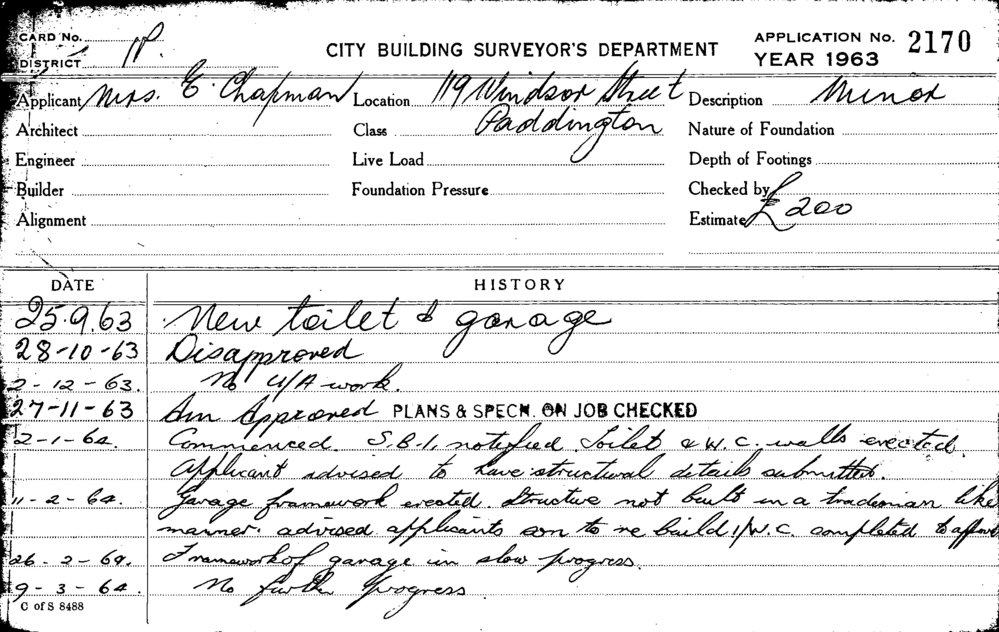 CARD No.
DISTRICT P.
CITY BUILDING SURVEYOR'S DEPARTMENT
APPLICATION No. 2170
YEAR 1963
Applicant Mrs. E. Chapman Location 119 Windsor Street Description Minor
Architect Class Paddington Nature of Foundation
Engineer Live Load Depth of Footings
Builder Foundation Pressure Checked by
Alignment Estimate £200
DATE HISTORY
25.9.63 New toilet & garage
28-10-63 Disapproved
2-12-63. No U/A work.
27-11-63 Am Approved PLANS & SPECN. ON JOB CHECKED
2-1-64. Commenced. S.B.I. notified. Toilet & W.C. walls erected.
Applicant advised to have structural details submitted.
11-2-64. Garage framework erected. Structure not built in a tradesman like
manner. advised applicants son to re build. W.C. completed to
26-2-64. Framework of garage in slow progress.
9-3-64. No further progress
C of S 8488